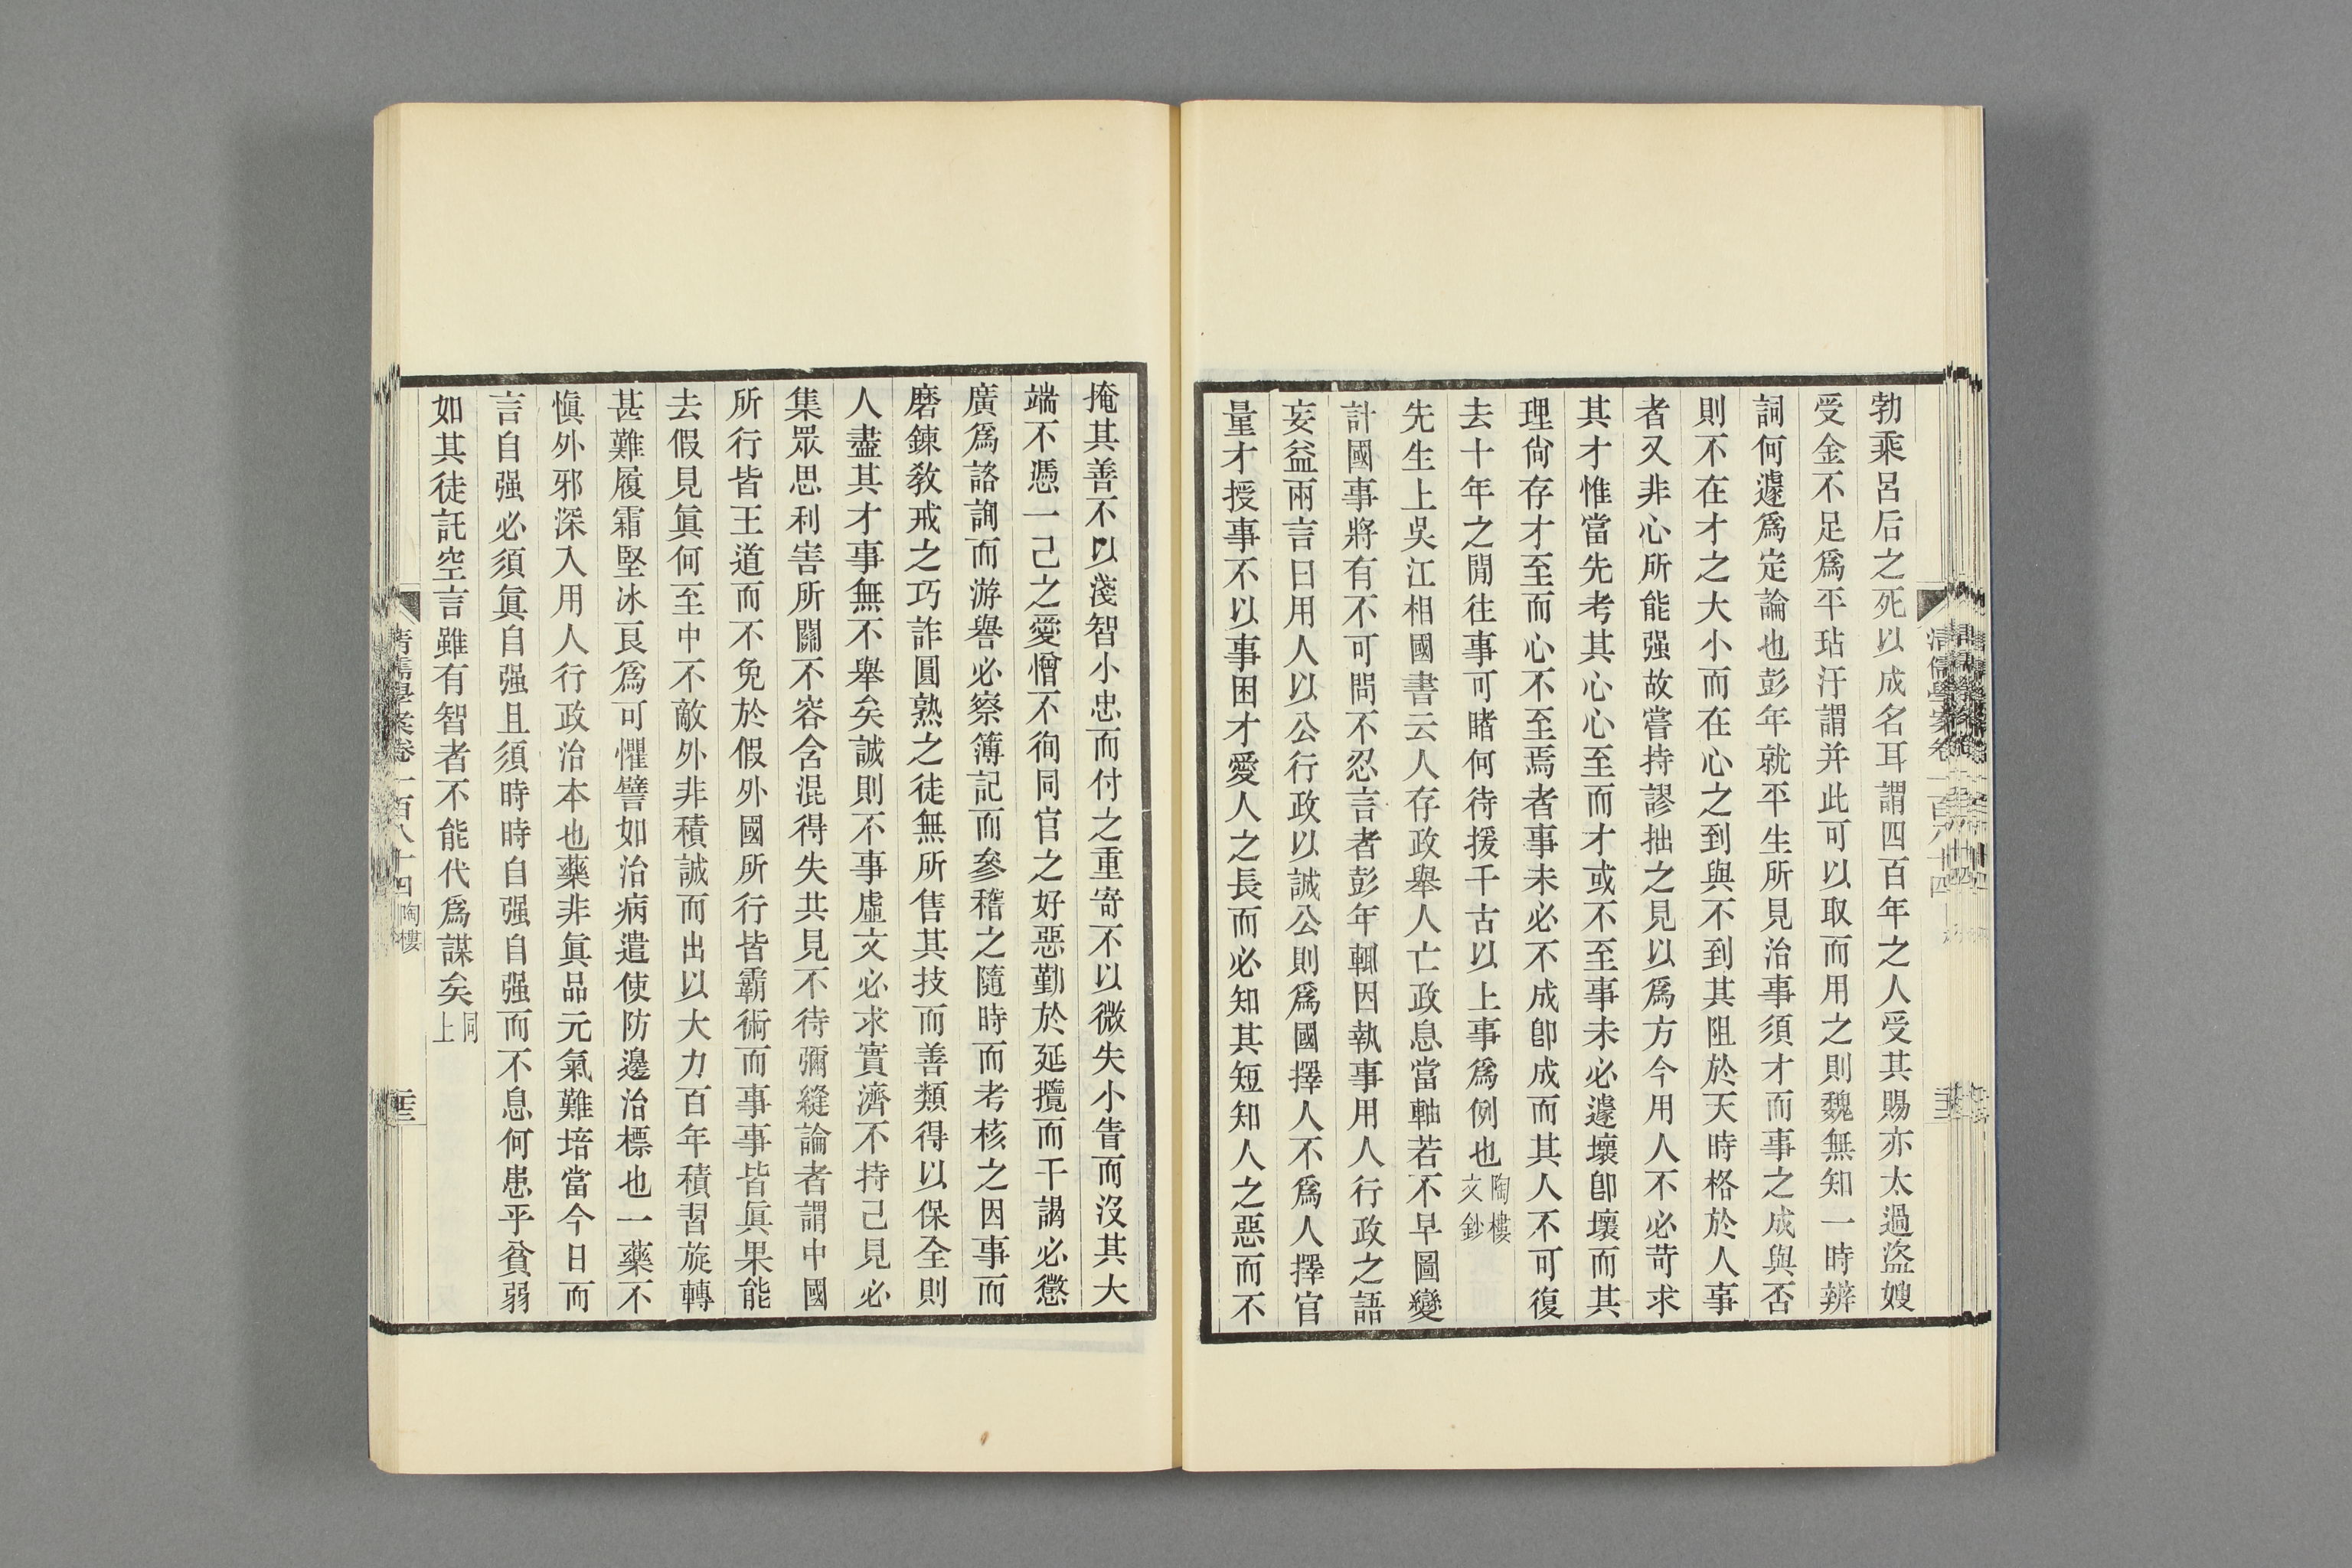 勃乘呂后之死以成名耳謂四百年之人受其賜亦太過盜嫂
受金不足爲平玷汙謂并此可以取而用之則魏無知一時辨
詞何遽爲定論也彭年就平生所見治事須才而事之成與否
則不在才之大小而在心之到與不到其阻於天時格於人事
者又非心所能强故嘗持謬拙之見以爲方今用人不必苛求
其才惟當先考其心心至而才或不至事未必遽壞卽壞而其
理尙存才至而心不至焉者事未必不成卽成而其人不可復
去十年之閒往事可睹何待援千古以上事爲例也陶樓文鈔
先生上吳江相國書云人存政舉人亡政息當軸若不早圖變
計國事將有不可問不忍言者彭年輒因執事用人行政之語
妄益兩言曰用人以公行政以誠公則爲國擇人不爲人擇官
量才授事不以事困才愛人之長而必知其短知人之惡而不
清儒學案卷一百八十四
掩其善不以淺智小忠而付之重寄不以微失小眚而沒其大
端不憑一己之愛憎不徇同官之好惡勤於延攬而干謁必懲
廣爲諮詢而游譽必察簿記而參稽之隨時而考核之因事而
磨鍊敎戒之巧詐圓熟之徒無所售其技而善類得以保全則
人盡其才事無不舉矣誠則不事虛文必求實濟不持己見必
集眾思利害所關不容含混得失共見不待彌縫論者謂中國
所行皆王道而不免於假外國所行皆霸術而事事皆眞果能
去假見眞何至中不敵外非積誠而出以大力百年積習旋轉
甚難履霜堅冰良爲可懼譬如治病遣使防邊治標也一藥不
愼外邪深入用人行政治本也藥非眞品元氣難培當今日而
言自强必須眞自强且須時時自强自强而不息何患乎貧弱
如其徒託空言雖有智者不能代爲謀矣同上
清儒學案卷一百八十四 陶樓